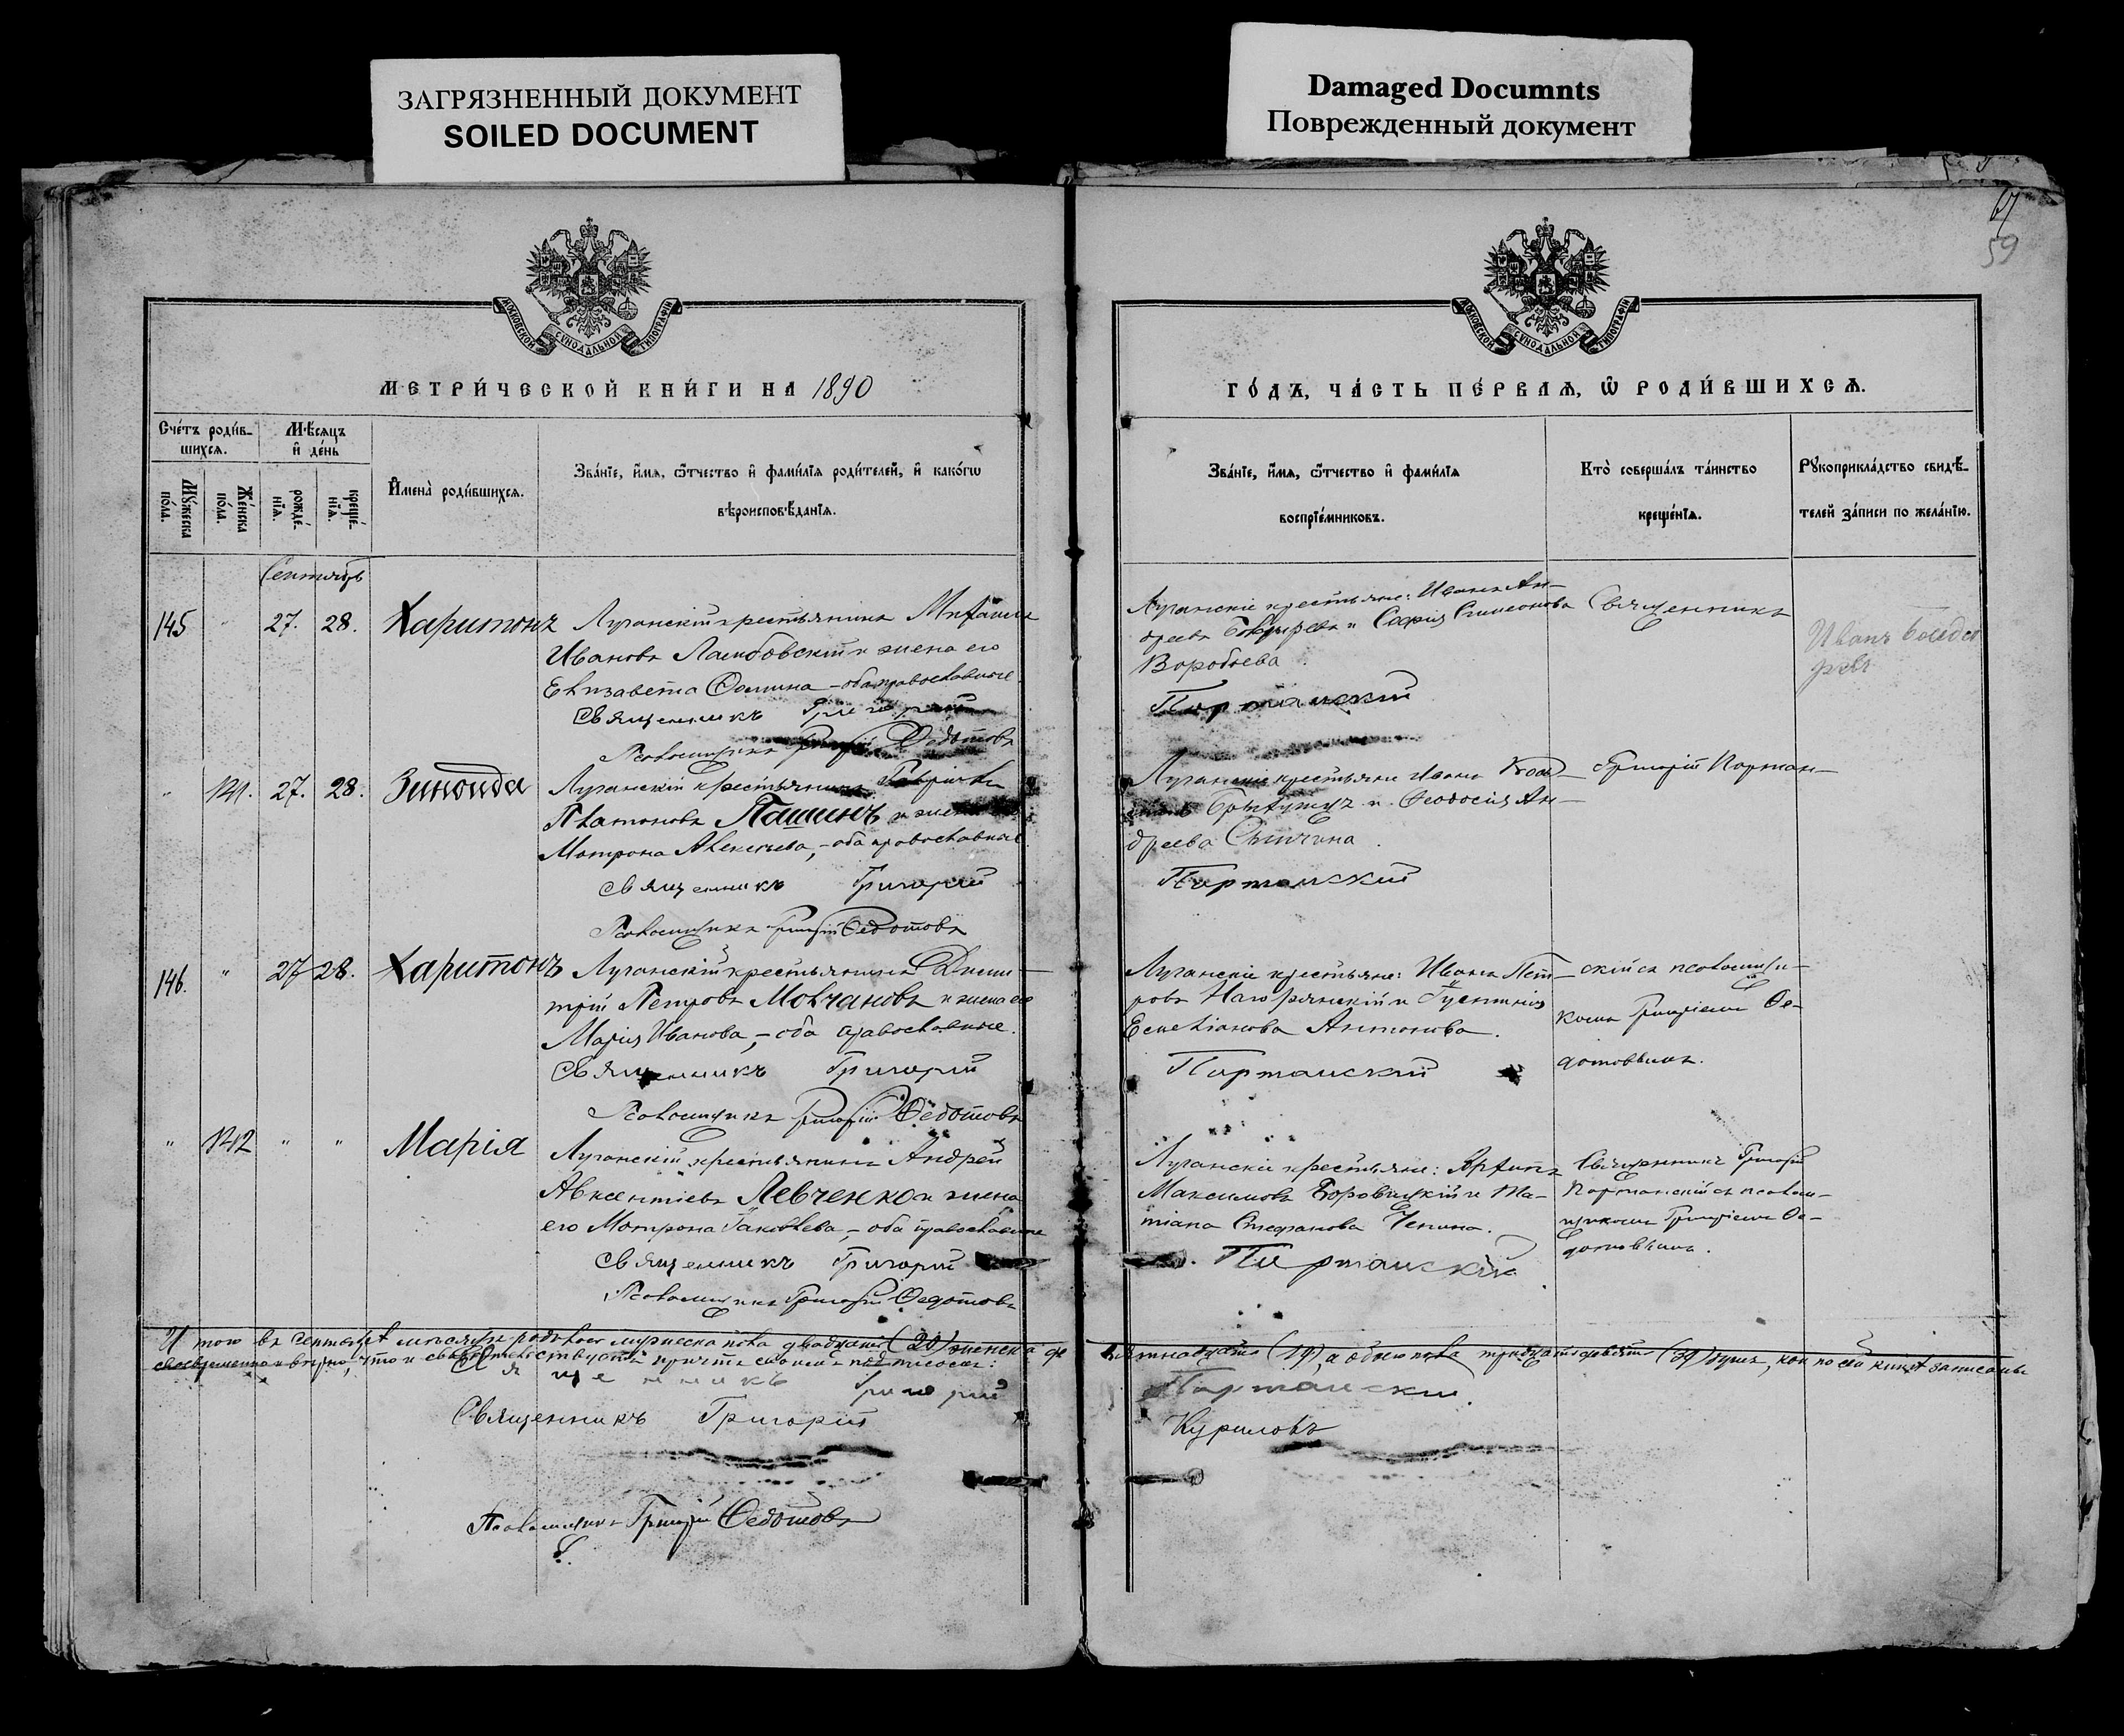 ЗАГРЯЗНЕННЫЙ ДОКУМЕНТ
SOILED DOCUMENT
Damaged Documnts
Поврежденный документ
67
59
МОСКОВСКОЙ СѴНОДАЛЬНОЙ ТИПОГРАФІИ
МОСКОВСКОЙ СѴНОДАЛЬНОЙ ТИПОГРАФІИ
МЕТРИ́ЧЕСКОЙ КНИ́ГИ НА 1890
ГО́ДЪ, ЧА́СТЬ ПЕ́РВАѦ, Ѽ РОДИ́ВШИХСѦ.
Сче́тъ роди́в-
шихсѧ.
Мѣ́сѧцъ
и҆ де́нь
Мꙋ́жеска
по́ла.
Же́нска
по́ла.
рожде́-
нїѧ.
креще́-
нїѧ.
И҆мена̀ роди́вшихсѧ.
Зва́нїе, и҆́мѧ, ѻ҆́тчество и҆ фами́лїѧ роди́телей, и҆ како́гѡ
вѣроисповѣ́данїѧ.
Зва́нїе, и҆́мѧ, ѻ҆́тчество и҆ фами́лїѧ
воспрїе́мниковъ.
Кто̀ соверша́лъ та́инство
креще́нїѧ.
Рꙋкоприкла́дство свидѣ́-
телей за́писи по жела́нїю.
Сентябрь
145 27. 28. Харитонъ Луганскій крестьянинъ Михаилъ
Ивановъ Ламбовскій и жена его
Елизавета Фомина – оба православные
Священникъ Григорій
Псаломщикъ Григорій Федотовъ
Луганскіе крестьяне: Иванъ Ан-
дреевъ и Софія Симеонова
Воробьева.
Портанскій
Священникъ
Иванъ
" 141. 27. 28. Зинаида Луганскій крестьянинъ
Платоновъ Пашинъ и жена его
Матрона Алексеева, – оба православные
Священникъ Григорій
Псаломщикъ Григорій Федотовъ
Луганскіе крестьяне Иванъ
и Феодосія Ан-
дреева
Портанскій
Григорій Портан-
146. " 27 28. Харитонъ Луганскій крестьянинъ Дими-
трій Петровъ Молчановъ и жена его
Марія Иванова, – оба православные.
Священникъ Григорій
Псаломщикъ Григорій Федотовъ
Луганскіе крестьяне: Иванъ Пет-
ровъ Нагорянскій и Іустинія
Емеліанова Антонова.
Портанскій
скій съ псаломщи-
комъ Григоріемъ Фе-
дотовымъ.
" 142 " " Марія Луганскій крестьянинъ Андрей
Авксентіевъ Левченко и жена
его Матрона Іаковлева, – оба православные
Священникъ Григорій
Псаломщикъ Григорій Федотовъ
Луганскіе крестьяне: Архипъ
Максимовъ Боровицкій и Та-
тіана Стефанова Чепина.
Портанскій
Священникъ Григорій
Портанскій съ псалом-
щикомъ Григоріемъ Фе-
дотовымъ.
Итого въ Сентябрѣ мѣсяцѣ родилось мужеска пола двадцать (20) женска де
вятнадцать (19), а обоего пола тридцать девять (39) душъ, кои по сей книгѣ записаны
своевременно и вѣрно, что и свидѣтельствуетъ причтъ своимъ подписомъ:
Священникъ Григорій
Портанскій.
Священникъ Григорій
Куриловъ
Псаломщикъ Григорій Федотовъ